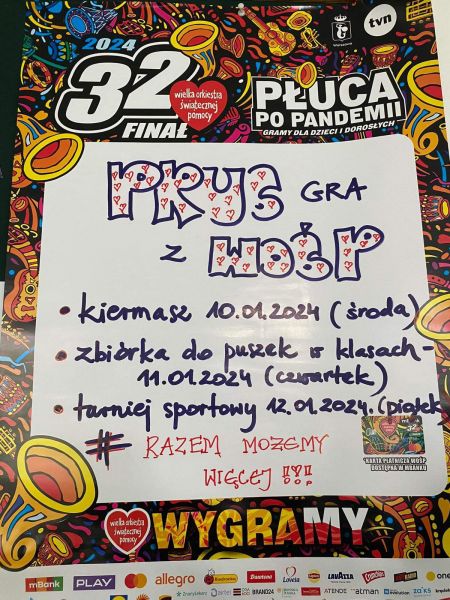 2024
32
FINAŁ
wielka orkiestra
świątecznej
pomocy
Warszawa
tvn
PŁUCA
PO PANDEMII
GRAMY DLA DZIECI I DOROSŁYCH
PRUS GRA
Z WOŚP
• kiermasz 10.01.2024 (środa)
• zbiórka do puszek w klasach -
11.01.2024 (czwartek)
• turniej sportowy 12.01.2024. (piątek)
# RAZEM MOŻEMY
WIĘCEJ !!!
KARTA PŁATNICZA WOŚP
DOSTĘPNA W MBANKU
wielka orkiestra
świątecznej
pomocy
WYGRAMY
mBank PLAY allegro Biedronka Danone Lovela LAVAZZA Crunchips
ZnanyLekarz BRAND24 ATENDE atman